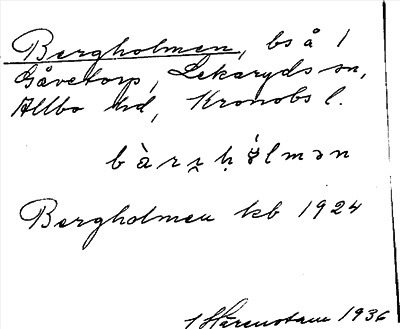 Bergholmen, bs å 1
Gåvetorp, Lekaryds sn,
Allbo hd, Kronobs l.
bàrr̯ḥólmən
Bergholmen kb 1924
Härenstam 1936